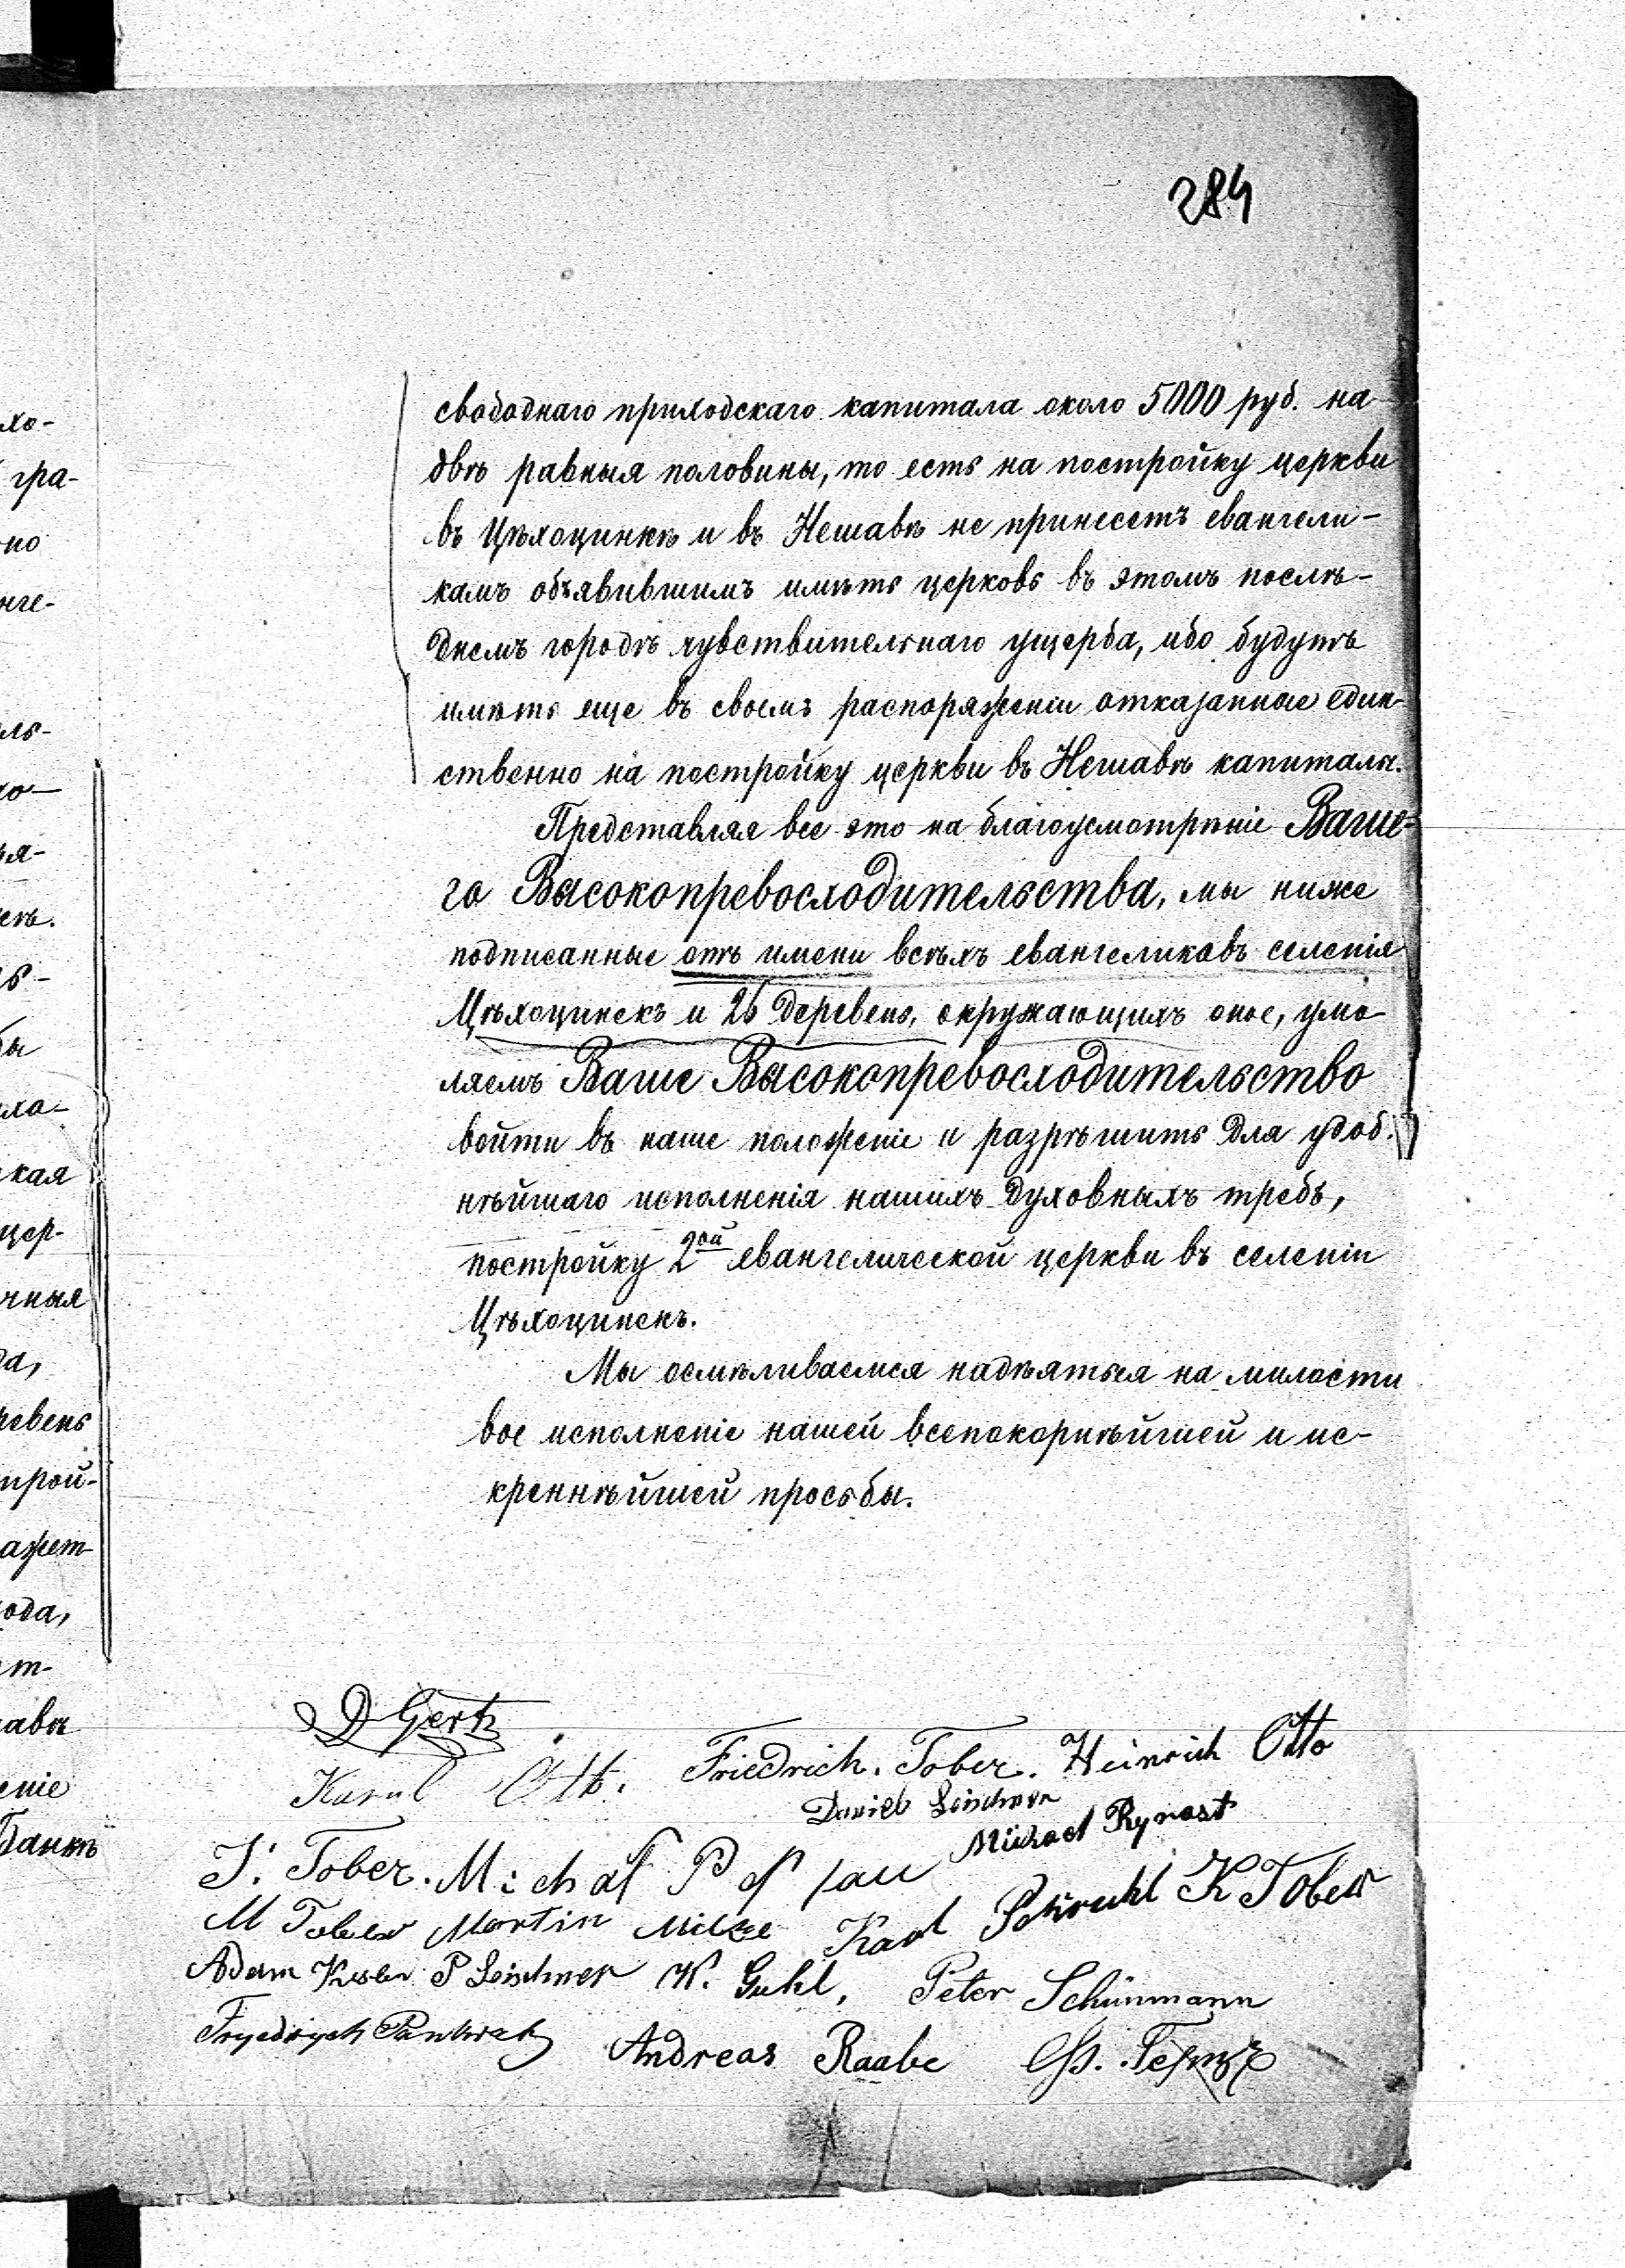 284
свободнаго приходскаго капитала около 5000 руб. на
двѣ равныя половины, то есть на постройку церкви
въ Цѣхоцинкѣ и въ Нешавѣ не принесетъ евангели-
камъ объявившимъ имѣть церковь въ этомъ послѣ-
днемъ городѣ чувствительнаго ущерба, ибо будутъ
имѣть еще въ своемъ распоряженіи отказанные един-
ственно на постройку церкви въ Нешавѣ капиталы.
Представляя все это на благоусмотрѣніе Ваше-
го Высокопревосходительства, мы ниже
подписанные отъ имени всѣхъ евангеликовъ селенія
Цѣхоцинекъ и 26 деревень, окружающихъ оное, умо-
ляемъ Ваше Высокопревосходительство
войти въ наше положеніе и разрѣшить для удоб-
нѣйшаго исполненія нашихъ духовныхъ требъ,
постройку 2ой евангелической церкви въ селеніи
Цѣхоцинекъ.
Мы осмѣливаемся надѣяться на милости
вое исполненіе нашей всепокорнѣйшей и ис-
креннѣйшей просьбы.
D Gertz
Karol Ott. Friedrich. Tober. Heinrich Otto
David Leischner
Michael Rynast
J. Tober. Michal
M Tober Martin Milke Karl Schruhl K Tober
Adam P Leischner W. Guhl, Peter Schünmann
Frydrych Pankratz Andreas Raabe